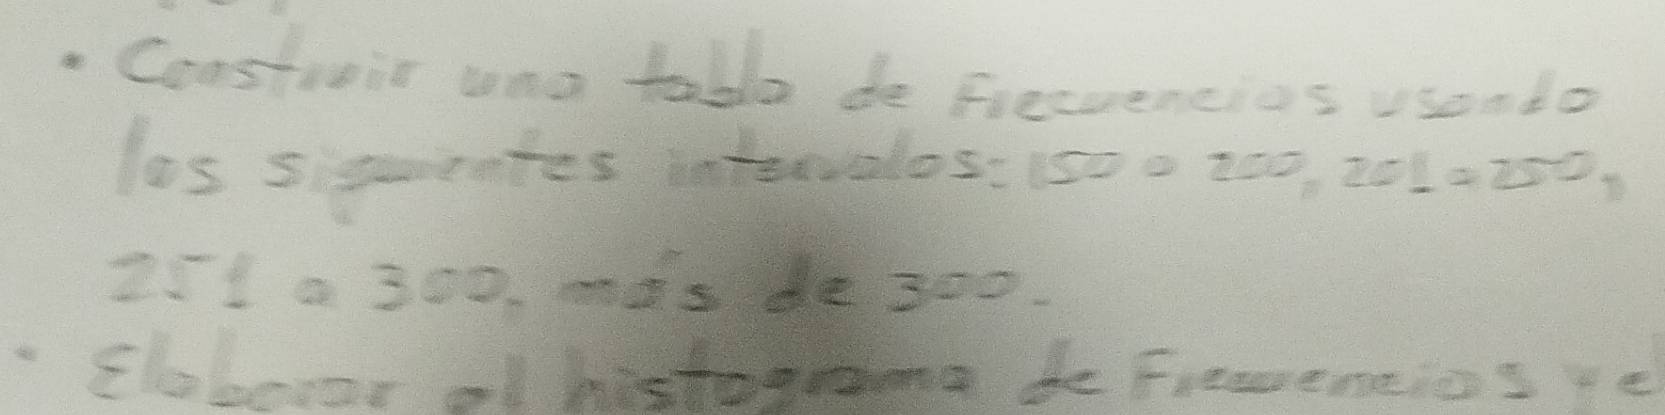 • Construir una tabla de Frecuencias usando
los siguientes intervalos: 150 a 200, 201 a 250,
251 a 300, más de 300.
• Elaborar el histograma de Frecuencias y el